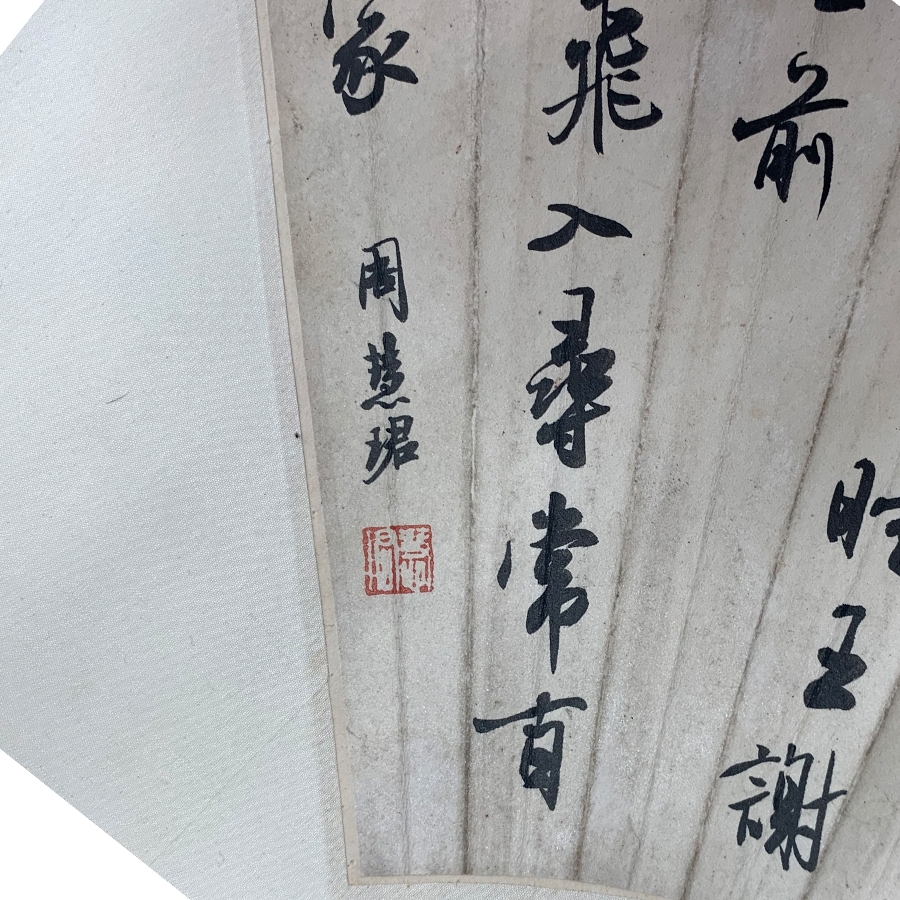 時王謝
前
飛入尋常百
家
周慧珺
慧珺